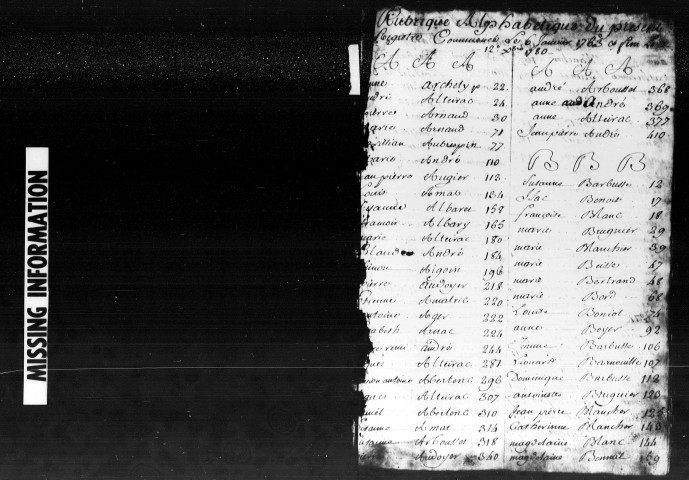 MISSING INFORMATION
Rubrique Alphabetique du present
Registre Commencé Le 6 Janvier 1763
12e xbre 1780
A A A
anne archely p 22
André Alteirac 24
pierre Arnaud 30
marie Arnaud 71
Aubrespin 77
marie André 110
jean pierre Augier 113
Louis Amat 134
Albaret 158
francois Albary 165
marie Alteirac 180
Claude André 184
Simon Aigoin 196
pierre Audoyer 218
Etienne Amalric 220
antoine Ager 222
Elisabeth Arnac 224
andré 244
Alteirac 281
Abertenc 296
Alteirac 307
Abertenc 310
Susanne Amat 314
Susanne Arbousset 318
Audoyer 340
A A A
andre Arbousset 368
anne André 369
anne Alteirac 377
Jean pierre André 410
B B B
Susanne Barbusse 12
Isac Benoit 17
françoise Blanc 18
marie Bruguier 29
marie Blancher 39
marie Beisse 47
marie Bertrand 48
marie Bord
Louise Boniol 74
anne Boyer 92
Jeanne Barbusse 106
Lionnard 107
Dominique Barbusse 112
antoinette Bruguier 120
Jean pierre Blancher
Catherinne Blancher 140
magdelaine Blanc 144
magdelaine 159